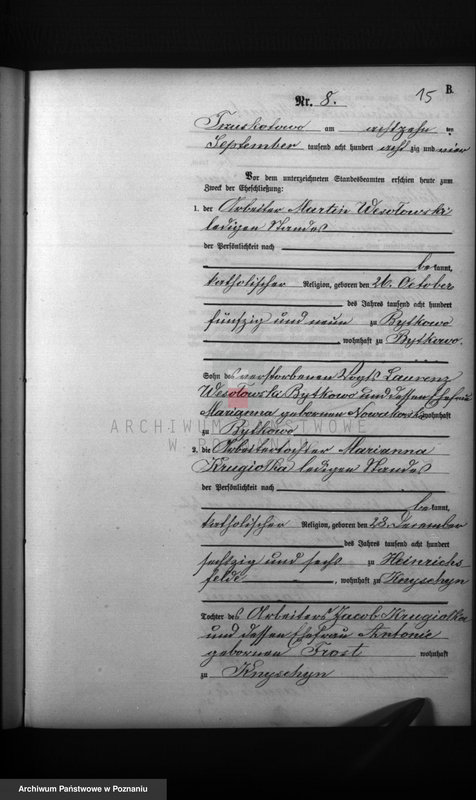 B.
Nr. 8. 15
Truskotowo am achtzehn ten
September tausend acht hundert acht zig und vier
Vor dem unterzeichneten Standesbeamten erschien heute zum
Zweck der Eheschließung:
1. der Arbeiter Martin Wesołowski
ledigen Standes
der Persönlichkeit nach
be kannt,
katholischer Religion, geboren den 26. October
des Jahres tausend acht hundert
fünfzig und neun zu Bytkowo
, wohnhaft zu Bytkowo.
Sohn des verstorbenen Vogts Laurenz
Wesołowski Bytkowo und dessen Ehefrau
Marianna geborenen Nowakowska wohnhaft
zu Bytkowo
ARCHIWUM PAŃSTWOWE
W POZNANIU
2. die Arbeitertochter Marianna
Krugiołka ledigen Standes
der Persönlichkeit nach
be kannt,
katholischer Religion, geboren den 23. December
des Jahres tausend acht hundert
sechszig und sechs zu Heinrichs
felde , wohnhaft zu Knyschyn
Tochter des Arbeiters Jacob Krugiolka
und dessen Ehefrau Antonie
geborenen Frost wohnhaft
zu Knyschyn
Archiwum Państwowe w Poznaniu